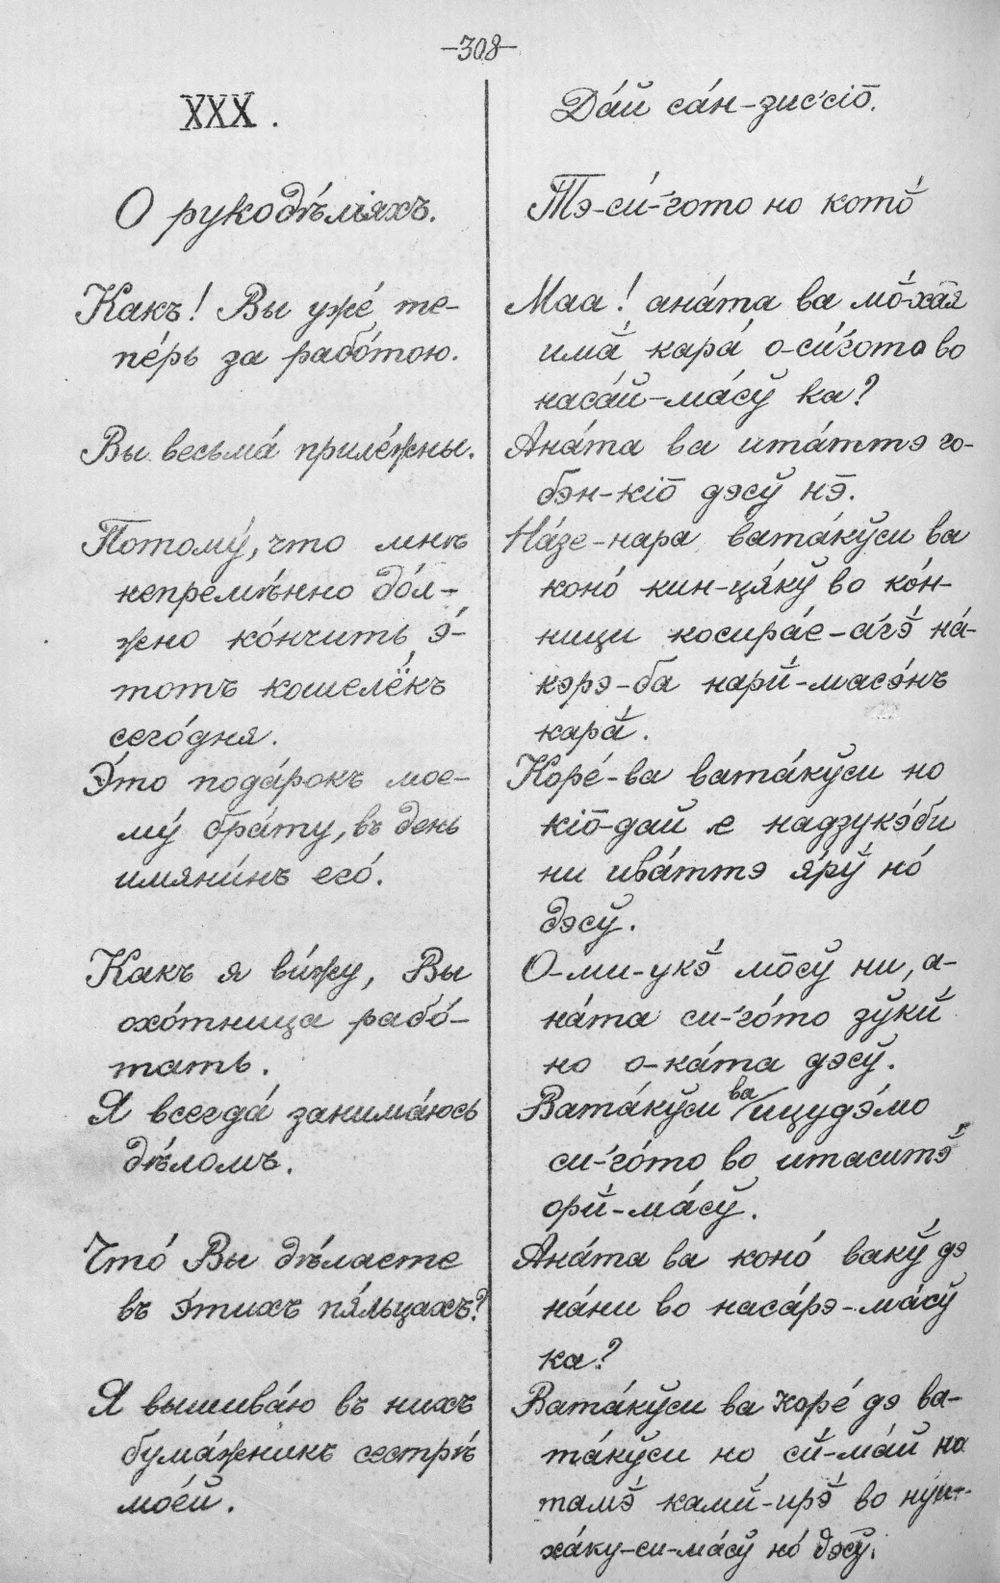 –308–
XXX.
О рукодѣліяхъ.
Какъ! Вы ужé те-
пéрь за рабóтою.
Вы весьмá прилéжны.
Потомý, что мнѣ
непремѣ́нно дóл-
жно кóнчить э́-
тотъ кошелёкъ
сегóдня.
Э́то подáрокъ мое-
мý брáту, въ день
имянúнъ егó.
Какъ я вúжу, Вы
охóтница рабó-
тать.
Я всегдá занимáюсь
дѣ́ломъ.
Чтó Вы дѣ́лаете
въ э́тихъ пя́льцахъ?
Я вышивáю въ нихъ
бумáжникъ сестрѣ́
моéй.
Дáй сáн-зиссіō.
Тэ-сú-гото но котō̆
Маа! анáта ва мō-хāя
имā̆ карá о-сúгото во
насáй-мáсў ка?
Анáта ва итáттэ го-
бэн-кіō дэсў нэ̄.
Нáзе-нара ватáкўси ва
конó кин-ця́кў во кóн-
ници косирáе-áгэ̆ нá-
кэрэ-ба нарӣ-масэ́нъ
карā̆.
Корé-ва ватáкўси но
кіō-дай е надзукэ́би
ни ивáттэ я́рў нó
дэсў.
О-ми-укэ̆ мōсў ни, а-
нáта си-гóто зўкӣ
но о-кáта дэсў.
Ватáкўси ва ицудэ́мо
си-гóто во итаситэ̆
орӣ-мáсў.
Анáта ва конó вакў дэ
нáни во насáрэ-мáсў
ка?
Ватáкўси ва корé дэ ва-
тáкўси но сӣ-мáй но
тамэ̆ камӣ-ирэ̆ во нуи-
хáку-си-мáсў нó дэсў.